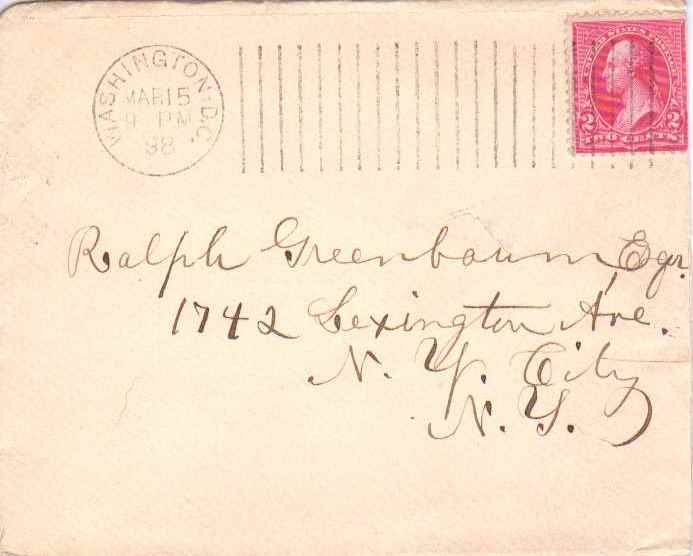 WASHINGTON, D.C.
MAR 15
9 PM
98
UNITED STATES POSTAGE
2 2
TWO CENTS
Ralph Greenbaum, Esqr.
1742 Lexington Ave.
N. Y. City
N. Y.